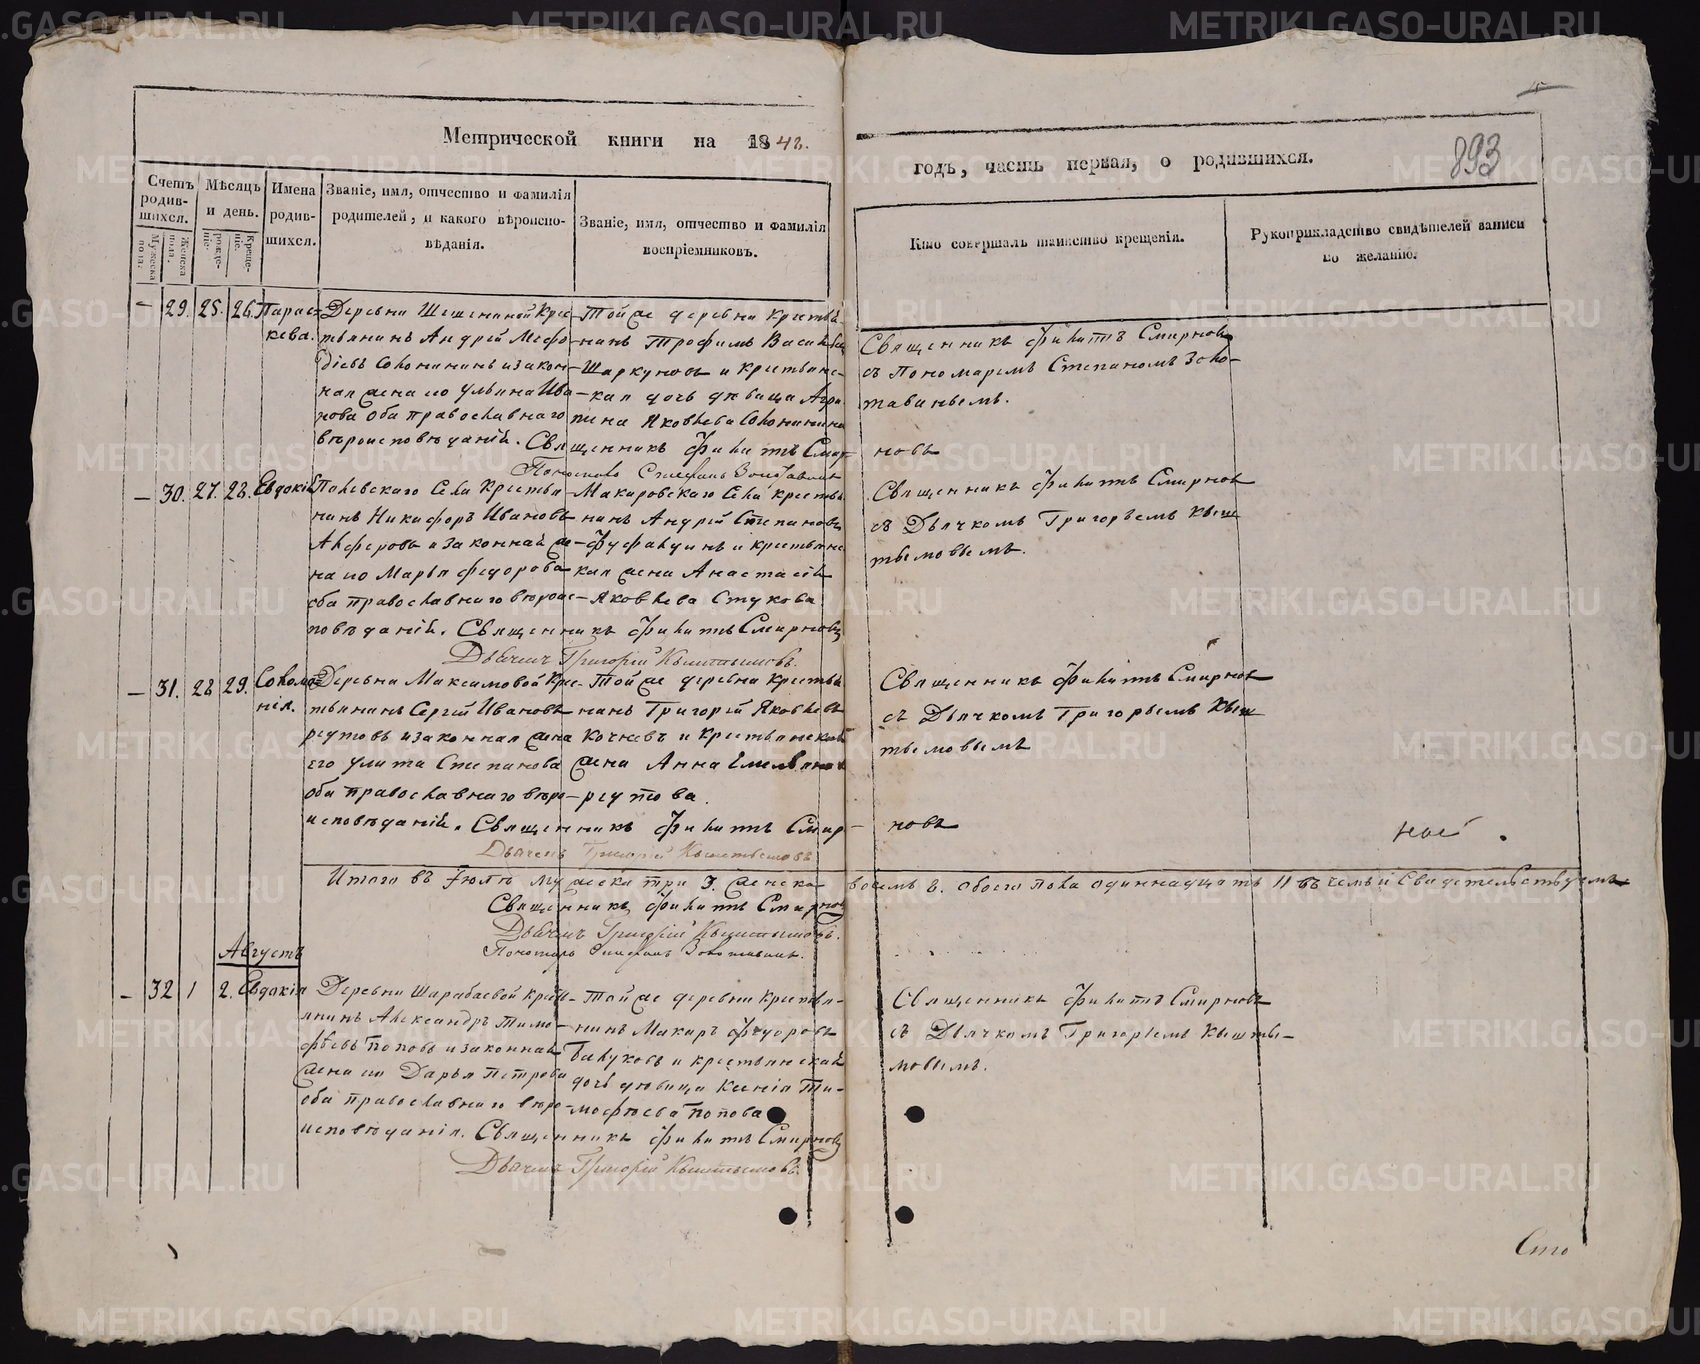 Метрической книги на 1842.
годъ, часть первая, о родившихся.
893
Счетъ родившихся.
Мужеска пола.
Женска пола.
Мѣсяцъ и день.
рожденіе.
Крещеніе.
Имена родившихся.
Званіе, имя, отчество и фамилія
родителей, и какого вѣроиспо-
вѣданія.
Званіе, имя, отчество и фамилія
воспріемниковъ.
Кто совершалъ таинство крещенія.
Рукоприкладство свидѣтелей записи
по желанію.
29. 25. 26. Парас-
кева.
Деревни Кре-
стьянинъ Андрей Мефо-
діевъ Соломининъ и закон-
ная жена его Ульяна Ива-
нова оба православнаго
вѣроисповѣданій. Священникъ Филиппъ Смир-
новъ
Пономарь Стефанъ Золотавинъ
Той же деревни Крестья-
нинъ Трофимъ Васильевъ
Шаркуновъ и крестьянс-
кая дочь дѣвица Агри-
пина Яковлева Соломинина
Священникъ Филиппъ Смирновъ
съ Пономаремъ Степаномъ Золо-
тавинымъ.
30. 27. 28. Евдокія
Палевскаго Села Крестья-
нинъ Никифоръ Ивановъ
Алферовъ и законная же-
на его Марья Федорова
оба православнаго вѣроис-
повѣданій. Священникъ Филиппъ Смирновъ
Дьячекъ Григорій Кыштымовъ.
Макаровскаго Села крестья-
нинъ Андрей Степановъ
и крестьянс-
кая жена Анастасія
Яковлева Стукова
Священникъ Филиппъ Смирновъ
съ Дьячкомъ Григорьемъ Кыш-
тымовымъ.
31. 28 29. Соломо-
нія.
Деревни Максимовой Кре-
стьянинъ Сергій Ивановъ
Реутовъ и законная жена
его Улита Степанова
оба православнаго вѣро-
исповѣданій. Священникъ Филиппъ Смир-
новъ
Дьячекъ Григорій Кыштымовъ
Той же деревни Крестья-
нинъ Григорій Яковлевъ
Кочневъ и Крестьянская
жена Анна Емельянова
Реутова.
Священникъ Филиппъ Смирновъ
съ Дьячкомъ Григорьемъ Кыш-
тымовымъ
Итого въ Іюлѣ мужеска три 3. женска восемь 8. обоего пола одиннадцать 11 въ чемъ и Свидетельствуемъ
Священникъ Филиппъ Смирновъ
Дьячекъ Григорій Кыштымовъ.
Пономарь Стефанъ Золотавинъ.
Августъ
32 1 2. Евдокія
Деревни Шарабаевой Крест-
янинъ Александръ Тимо-
фѣевъ Поповъ и законная
жена его Дарья Петрова
оба православнаго вѣро-
исповѣданія. Священникъ Филиппъ Смирновъ
Дьячекъ Григорій Кыштымовъ.
Той же деревни Крестья-
нинъ Макаръ Федоровъ
Балуковъ и крестьянская
дочь дѣвица Ксенія Ти-
мофѣева Попова
Священникъ Филиппъ Смирновъ
съ Дьячкомъ Григоріемъ Кышты-
мовымъ.
METRIKI.GASO-URAL.RU